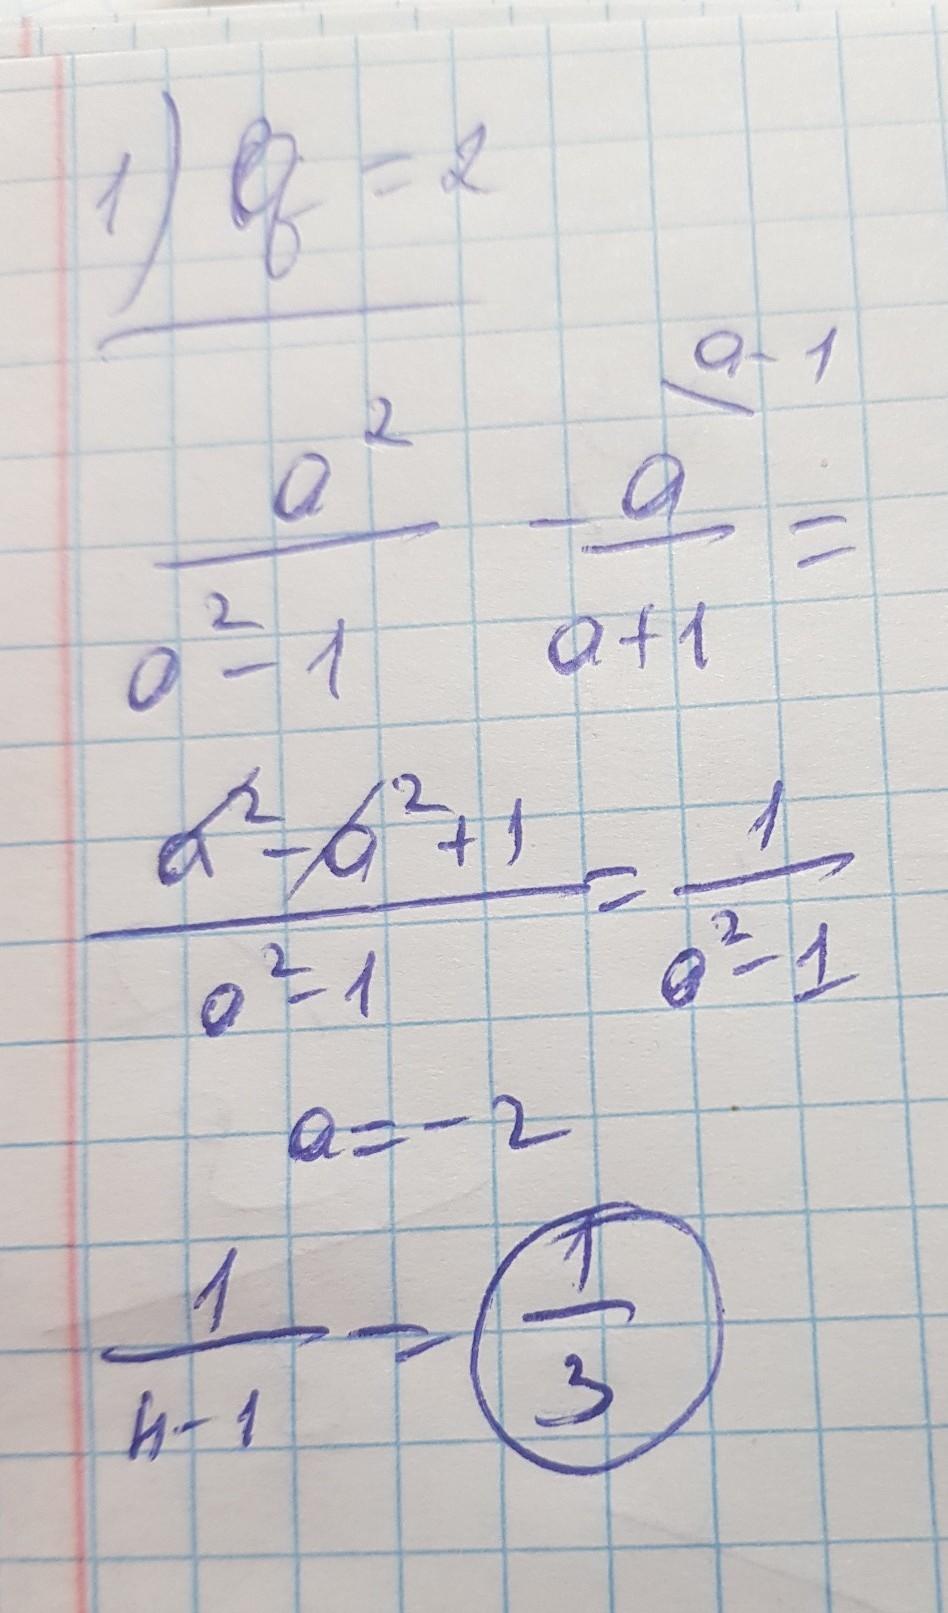 1) q = 2
a - 1
a² / (a² - 1) - a / (a + 1) =
(a² - a² + 1) / (a² - 1) = 1 / (a² - 1)
a = - 2
1 / (4 - 1) = 1 / 3